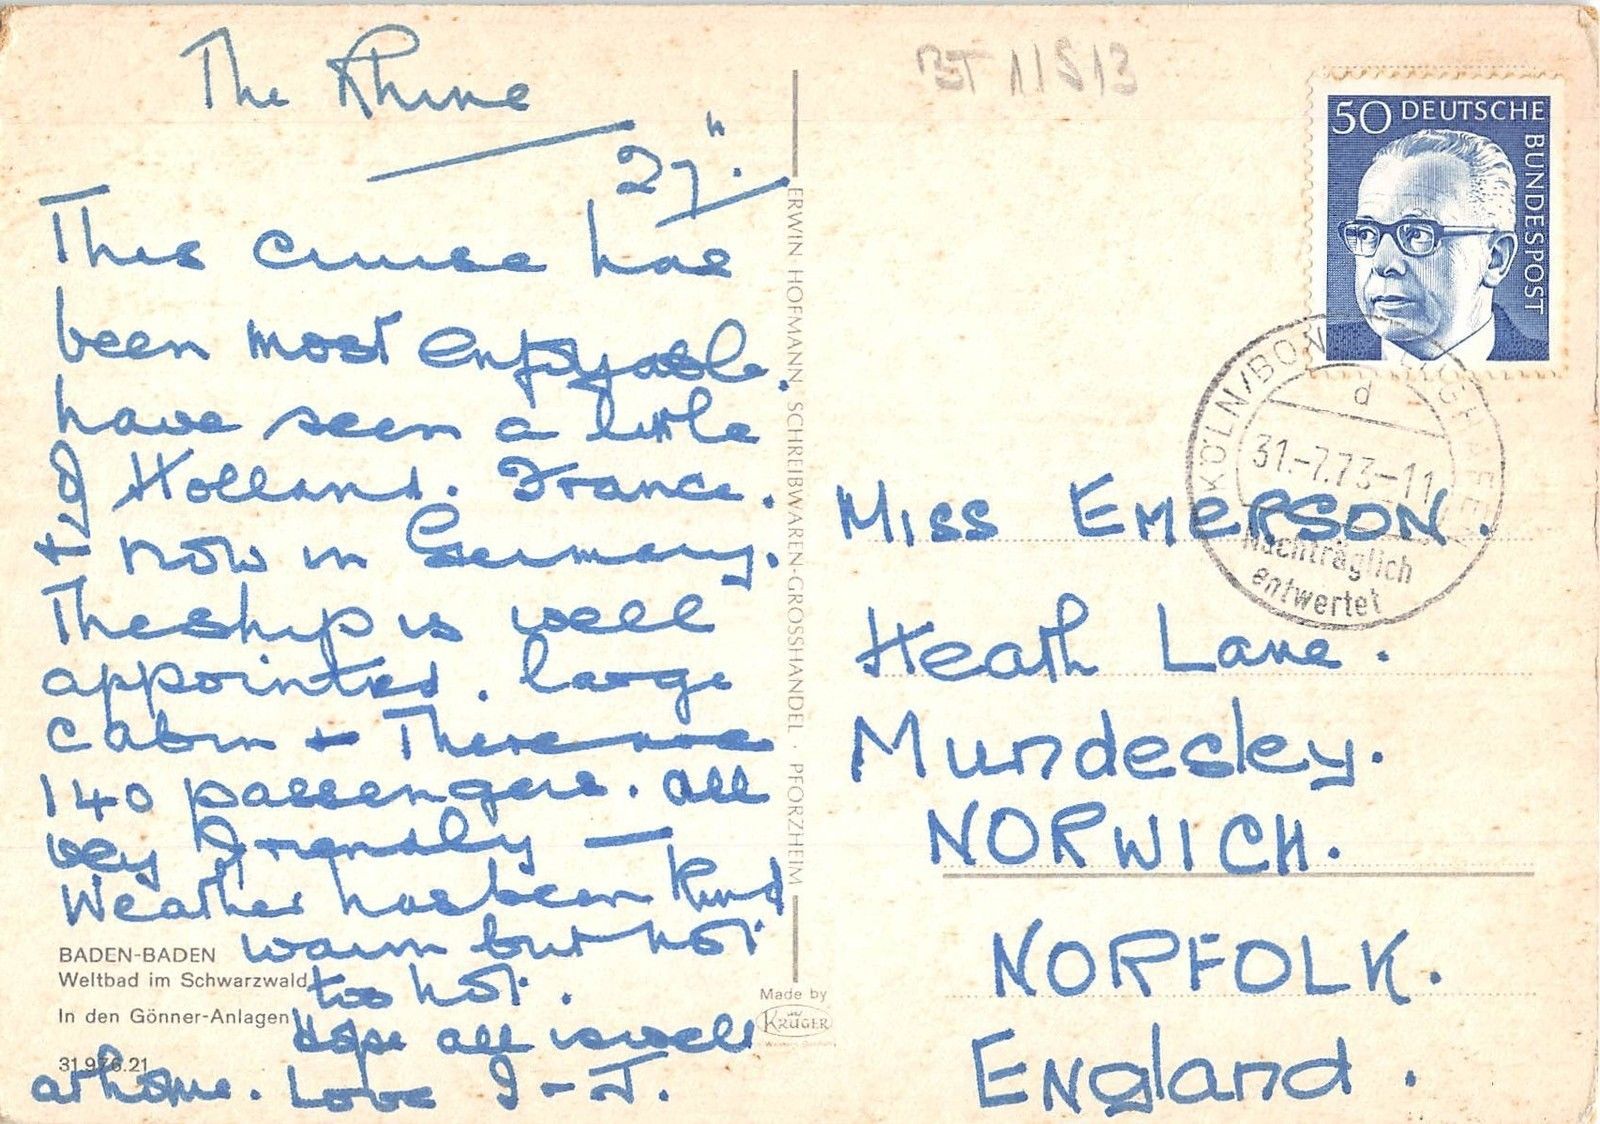 The Rhine
27".
This cruise has
been most enjoyable.
have seen a little
of Holland. France.
+ now in Germany.
The ship is well
appointed. large
cabin + There are
140 passengers. all
very friendly —
Weather has been kind
warm but not
too hot.
Hope all is well
at home. Love J - J.
BADEN-BADEN
Weltbad im Schwarzwald
In den Gönner-Anlagen
31.976.21
ERWIN HOFMANN SCHREIBWAREN-GROSSHANDEL · PFORZHEIM
Made by
KRÜGER
BT 11513
50 DEUTSCHE
BUNDESPOST
KÖLN/BONN FLUGHAFEN
d
31.-7.73-11
Nachträglich
entwertet
Miss EMERSON.
Heath Lane.
Mundesley.
NORWICH.
NORFOLK.
England.